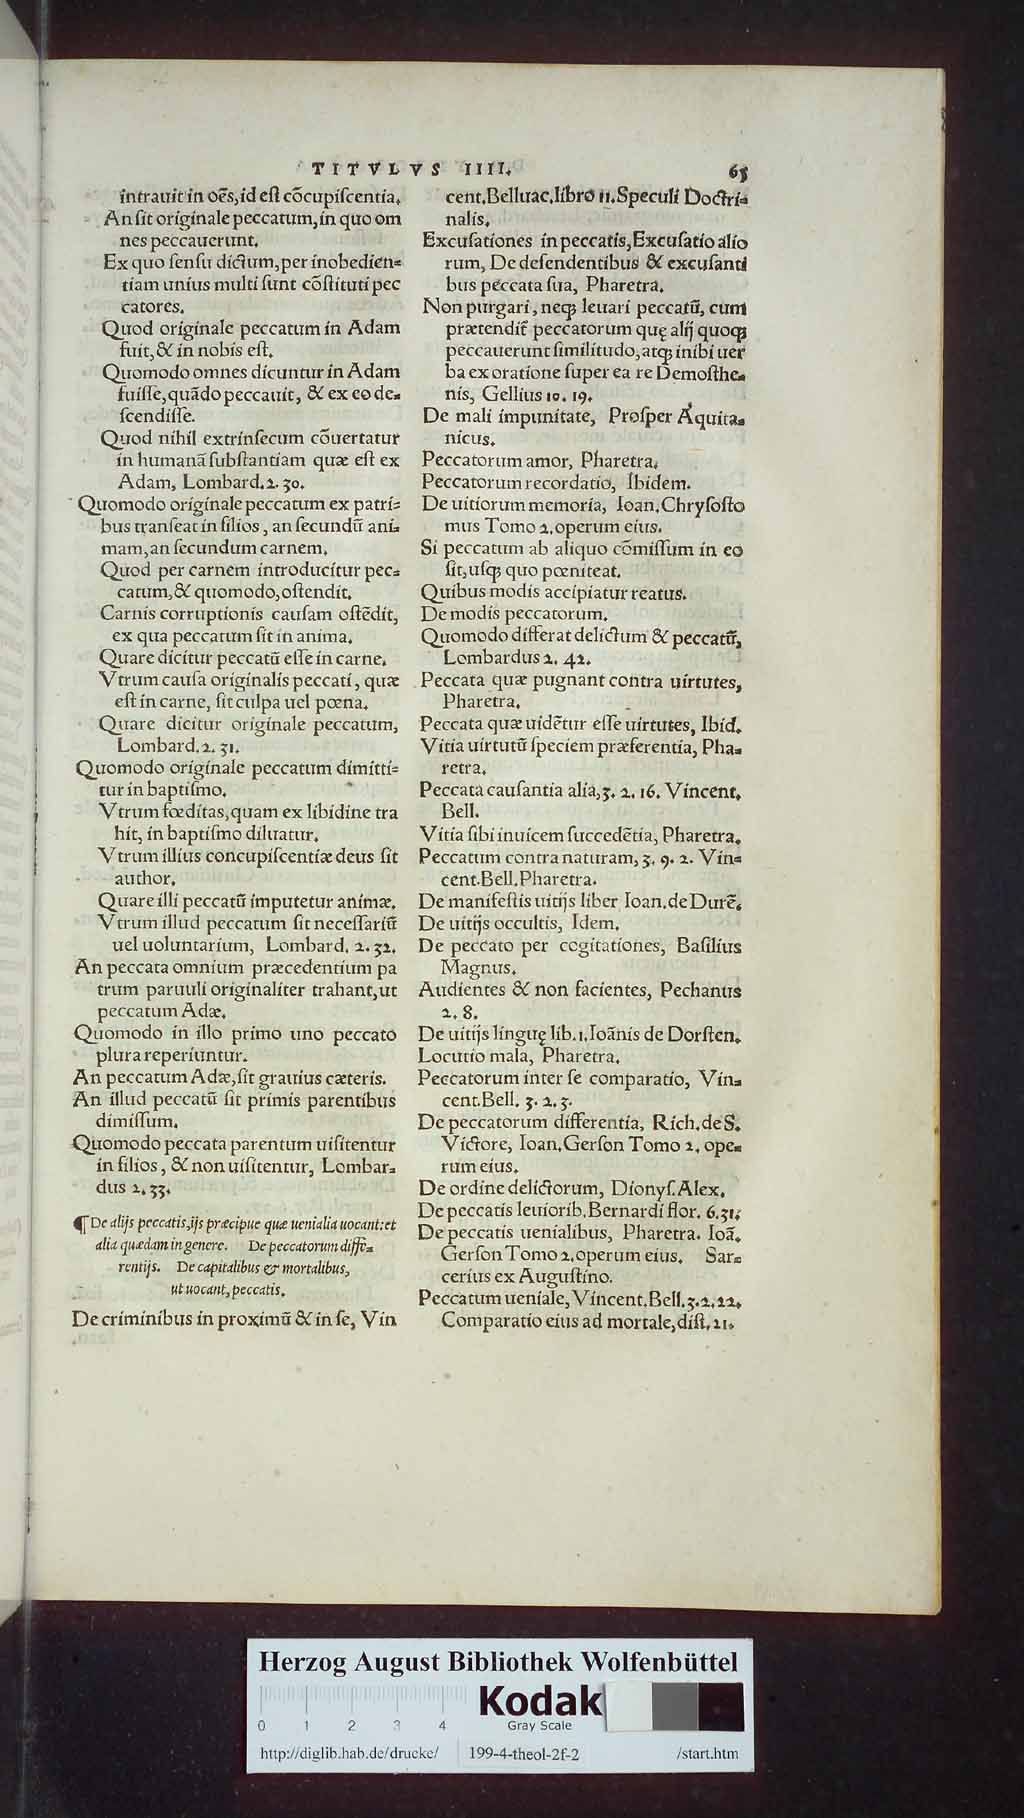 TITVLVS IIII. 65
intrauit in oẽs, id eſt cõcupiſcentia.
An ſit originale peccatum, in quo om
nes peccauerunt.
Ex quo ſenſu dictum, per inobedien⸗
tiam unius multi ſunt cõſtituti pec
catores.
Quod originale peccatum in Adam
fuit, & in nobis eſt.
Quomodo omnes dicuntur in Adam
fuiſſe, quãdo peccauit, & ex eo de⸗
ſcendiſſe.
Quod nihil extrinſecum cõuertatur
in humanã ſubſtantiam quæ eſt ex
Adam, Lombard. 2. 30.
Quomodo originale peccatum ex patri⸗
bus tranſeat in filios, an ſecundũ ani⸗
mam, an ſecundum carnem.
Quod per carnem introducitur pec⸗
catum, & quomodo, oſtendit.
Carnis corruptionis cauſam oſtẽdit,
ex qua peccatum ſit in anima.
Quare dicitur peccatũ eſſe in carne.
Vtrum cauſa originalis peccati, quæ
eſt in carne, ſit culpa uel pœna.
Quare dicitur originale peccatum,
Lombard. 2. 31.
Quomodo originale peccatum dimitti⸗
tur in baptiſmo.
Vtrum fœditas, quam ex libidine tra
hit, in baptiſmo diluatur.
Vtrum illius concupiſcentiæ deus ſit
author.
Quare illi peccatũ imputetur animæ.
Vtrum illud peccatum ſit neceſſariũ
uel uoluntarium, Lombard. 2. 32.
An peccata omnium præcedentium pa
trum paruuli originaliter trahant, ut
peccatum Adæ.
Quomodo in illo primo uno peccato
plura reperiuntur.
An peccatum Adæ, ſit grauius cæteris.
An illud peccatũ ſit primis parentibus
dimiſſum.
Quomodo peccata parentum uiſitentur
in filios, & non uiſitentur, Lombar⸗
dus 2. 33.
¶ De alijs peccatis, ijs præcipue quæ uenialia uocant: et
alia quædam in genere. De peccatorum diffe⸗
rentijs. De capitalibus & mortalibus,
ut uocant, peccatis.
De criminibus in proximũ & in ſe, Vin
cent. Belluac. libro 11. Speculi Doctri⸗
nalis.
Excuſationes in peccatis, Excuſatio alio
rum, De defendentibus & excuſanti
bus peccata ſua, Pharetra.
Non purgari, neqꝫ leuari peccatũ, cum
prætendit̃ peccatorum quę alij quoqꝫ
peccauerunt ſimilitudo, atqꝫ inibi uer
ba ex oratione ſuper ea re Demoſthe⸗
nis, Gellius 10. 19.
De mali impunitate, Proſper Aquita⸗
nicus.
Peccatorum amor, Pharetra.
Peccatorum recordatio, Ibidem.
De uitiorum memoria, Ioan. Chryſoſto
mus Tomo 2. operum eius.
Si peccatum ab aliquo cõmiſſum in eo
ſit, uſqꝫ quo pœniteat.
Quibus modis accipiatur reatus.
De modis peccatorum.
Quomodo differat delictum & peccatũ,
Lombardus 2. 42.
Peccata quæ pugnant contra uirtutes,
Pharetra.
Peccata quæ uidẽtur eſſe uirtutes, Ibid.
Vitia uirtutũ ſpeciem præferentia, Pha⸗
retra.
Peccata cauſantia alia, 3. 2. 16. Vincent.
Bell.
Vitia ſibi inuicem ſuccedẽtia, Pharetra.
Peccatum contra naturam, 3. 9. 2. Vin⸗
cent. Bell. Pharetra.
De manifeſtis uitijs liber Ioan. de Durẽ.
De uitijs occultis, Idem.
De peccato per cogitationes, Baſilius
Magnus.
Audientes & non facientes, Pechanus
2. 8.
De uitijs linguę lib. 1. Ioãnis de Dorſten.
Locutio mala, Pharetra.
Peccatorum inter ſe comparatio, Vin⸗
cent. Bell. 3. 2. 3.
De peccatorum differentia, Rich. de S.
Victore, Ioan. Gerſon Tomo 2. ope⸗
rum eius.
De ordine delictorum, Dionyſ. Alex.
De peccatis leuiorib. Bernardi flor. 6. 31.
De peccatis uenialibus, Pharetra. Ioã.
Gerſon Tomo 2. operum eius. Sar⸗
cerius ex Auguſtino.
Peccatum ueniale, Vincent. Bell. 3. 2. 22.
Comparatio eius ad mortale, diſt. 21.
Herzog August Bibliothek Wolfenbüttel
Kodak
Gray Scale
0 1 2 3 4
http://diglib.hab.de/drucke/ 199-4-theol-2f-2 /start.htm